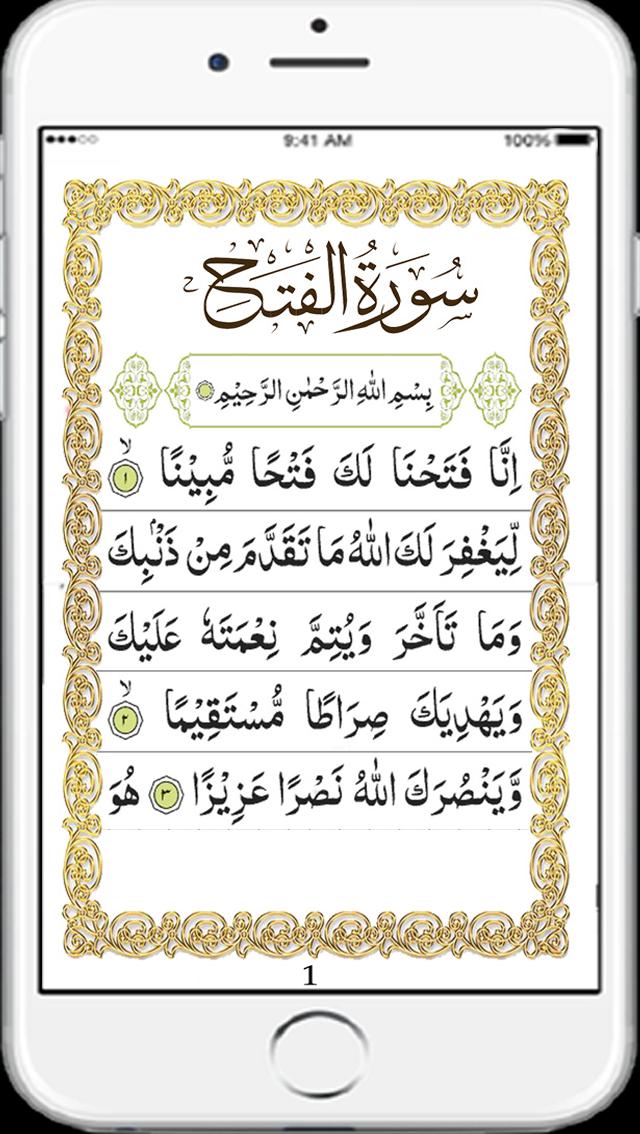 9:41 AM 100%
سُورَةُ الْفَتْحِ
بِسْمِ اللّٰهِ الرَّحْمٰنِ الرَّحِيْمِ
اِنَّا فَتَحْنَا لَكَ فَتْحًا مُّبِيْنًا ۙ ۱
لِّيَغْفِرَ لَكَ اللّٰهُ مَا تَقَدَّمَ مِنْ ذَنْۢبِكَ
وَمَا تَاَخَّرَ وَيُتِمَّ نِعْمَتَهٗ عَلَيْكَ
وَيَهْدِيَكَ صِرَاطًا مُّسْتَقِيْمًا ۙ ۲
وَّيَنْصُرَكَ اللّٰهُ نَصْرًا عَزِيْزًا ۳ هُوَ
1